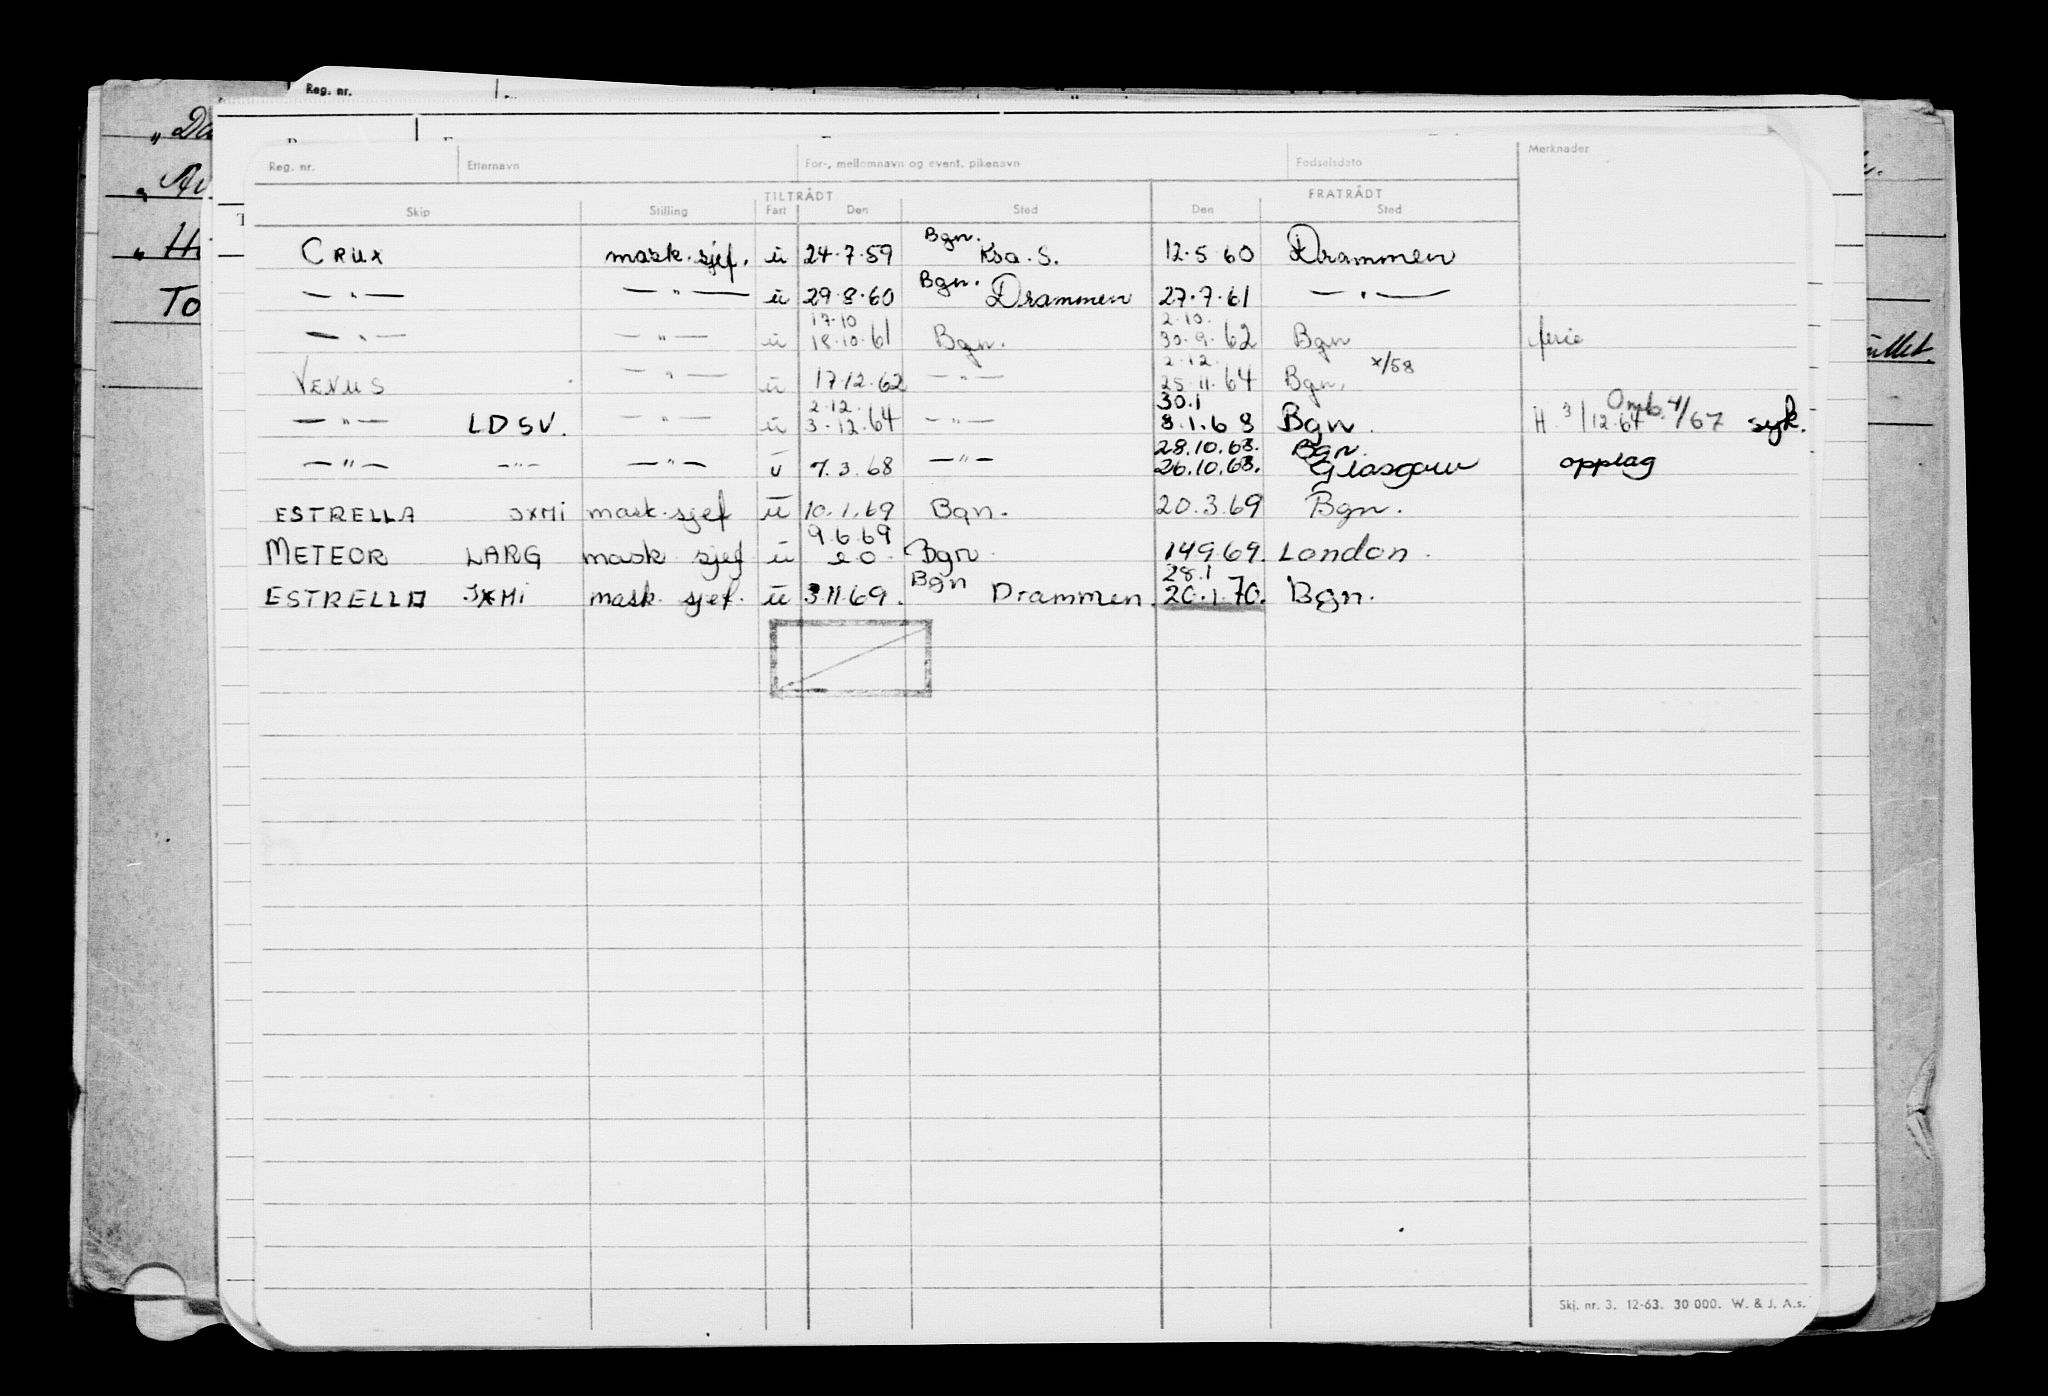 Reg. nr.
„ Da
„ Av
„ Hi
To
Reg. nr. Etternavn For-, mellomnavn og event. pikenavn Fødselsdato Merknader
TILTRÅDT FRATRÅDT
Skip Stilling Fart Den Sted Den Sted
CRUX mask. sjef. u 24.7.59 Bgn. Ksa. S. 12.5.60 Drammen
— " — — " — u 29.8.60 Bgn. Drammen 27.7.61 — " —
17.10 2.10.
— " — — " — u 18.10.61 Bgn. 30.9.62 Bgn ferie
2.12. x/58
VENUS — " — u 17.12.62 — " — 25.11.64 Bgn.
2.12. 30.1
— " — LDSV. — " — u 3.12.64 — " — 8.1.68 Bgn. H 3/12.64 Omb. 4/67 syk.
28.10.68. Bgn.
— " — — " — — " — u 7.3.68 — " — 26.10.68. Glasgow opplag
ESTRELLA JXMI mask. sjef u 10.1.69 Bgn. 20.3.69 Bgn.
9.6.69
METEOR LARG mask sjef u 20. Bgn. 14.9.69. London.
28.1
ESTRELLA JXMI mask. sjef. u 3.11.69. Bgn Drammen. 20.1.70. Bgn.
Skj. nr. 3. 12-63. 30 000. W. & J. A.s.